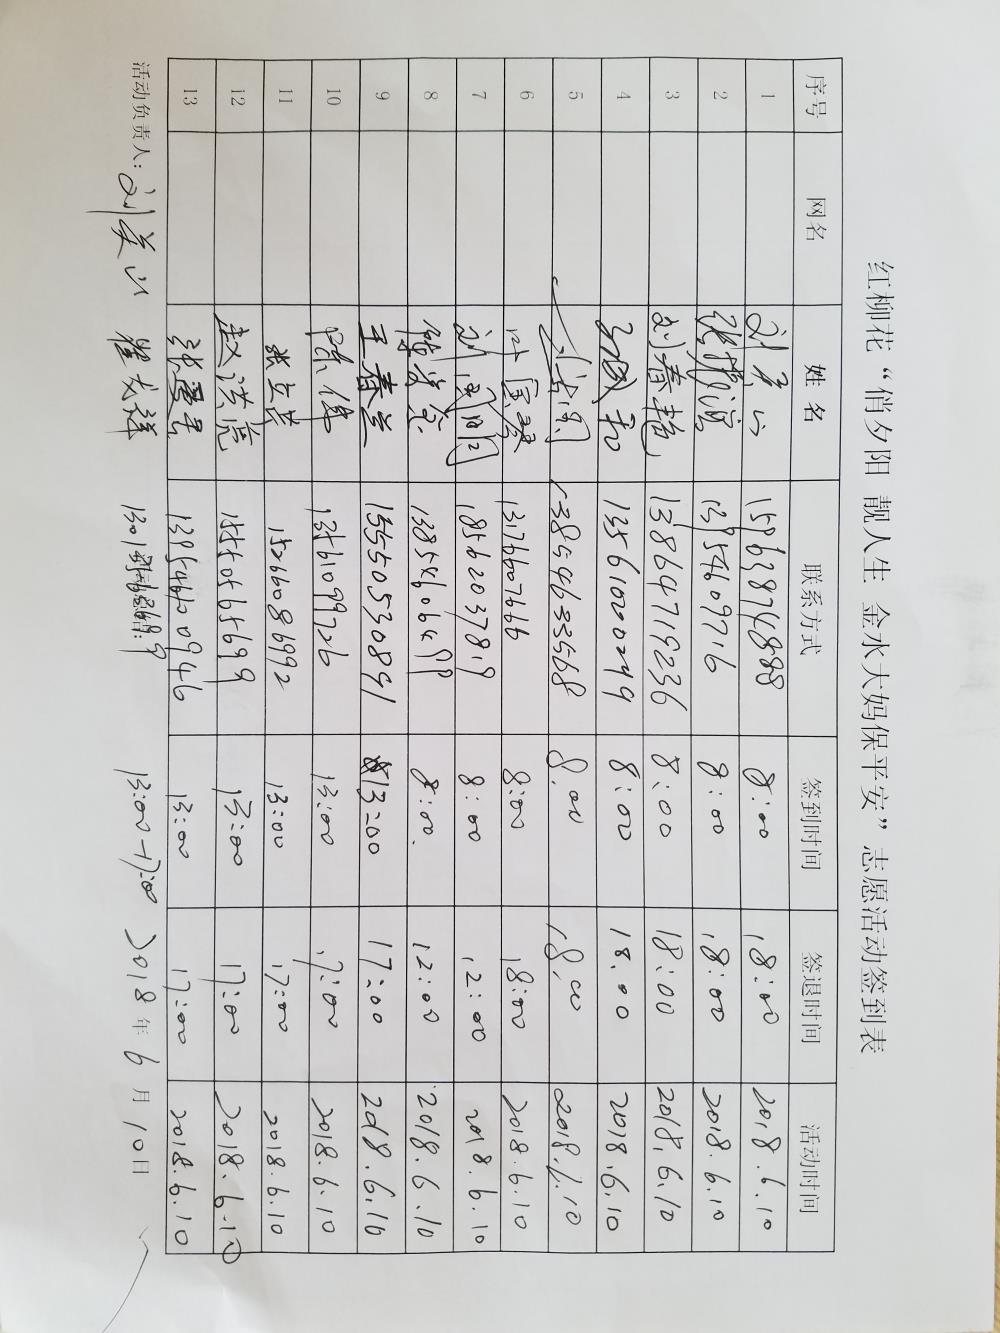 红柳花“俏夕阳 靓人生 金水大妈保平安”志愿活动签到表
序号 网名 姓名 联系方式 签到时间 签退时间 活动时间
1 15963874888 8:00 18:00 2018.6.10
2 13954609716 8:00 18:00 2018.6.10
3 刘春艳 13864719236 8:00 18:00 2018.6.10
4 13561020249 8:00 18:00 2018.6.10
5 13854633568 8:00 18:00 2018.6.10
6 13176607666 8:00 18:00 2018.6.10
7 18562037819 8:00 12:00 2018.6.10
8 8:00 12:00 2018.6.10
9 王春兰 15550530891 13:00 17:00 2018.6.10
10 陈伟 13561099726 13:00 17:00 2018.6.10
11 15266086992 13:00 17:00 2018.6.10
12 赵洪亮 15550565699 13:00 17:00 2018.6.10
13 13:00 17:00 2018.6.10
活动负责人: 13:00-17:00 2018年6月10日